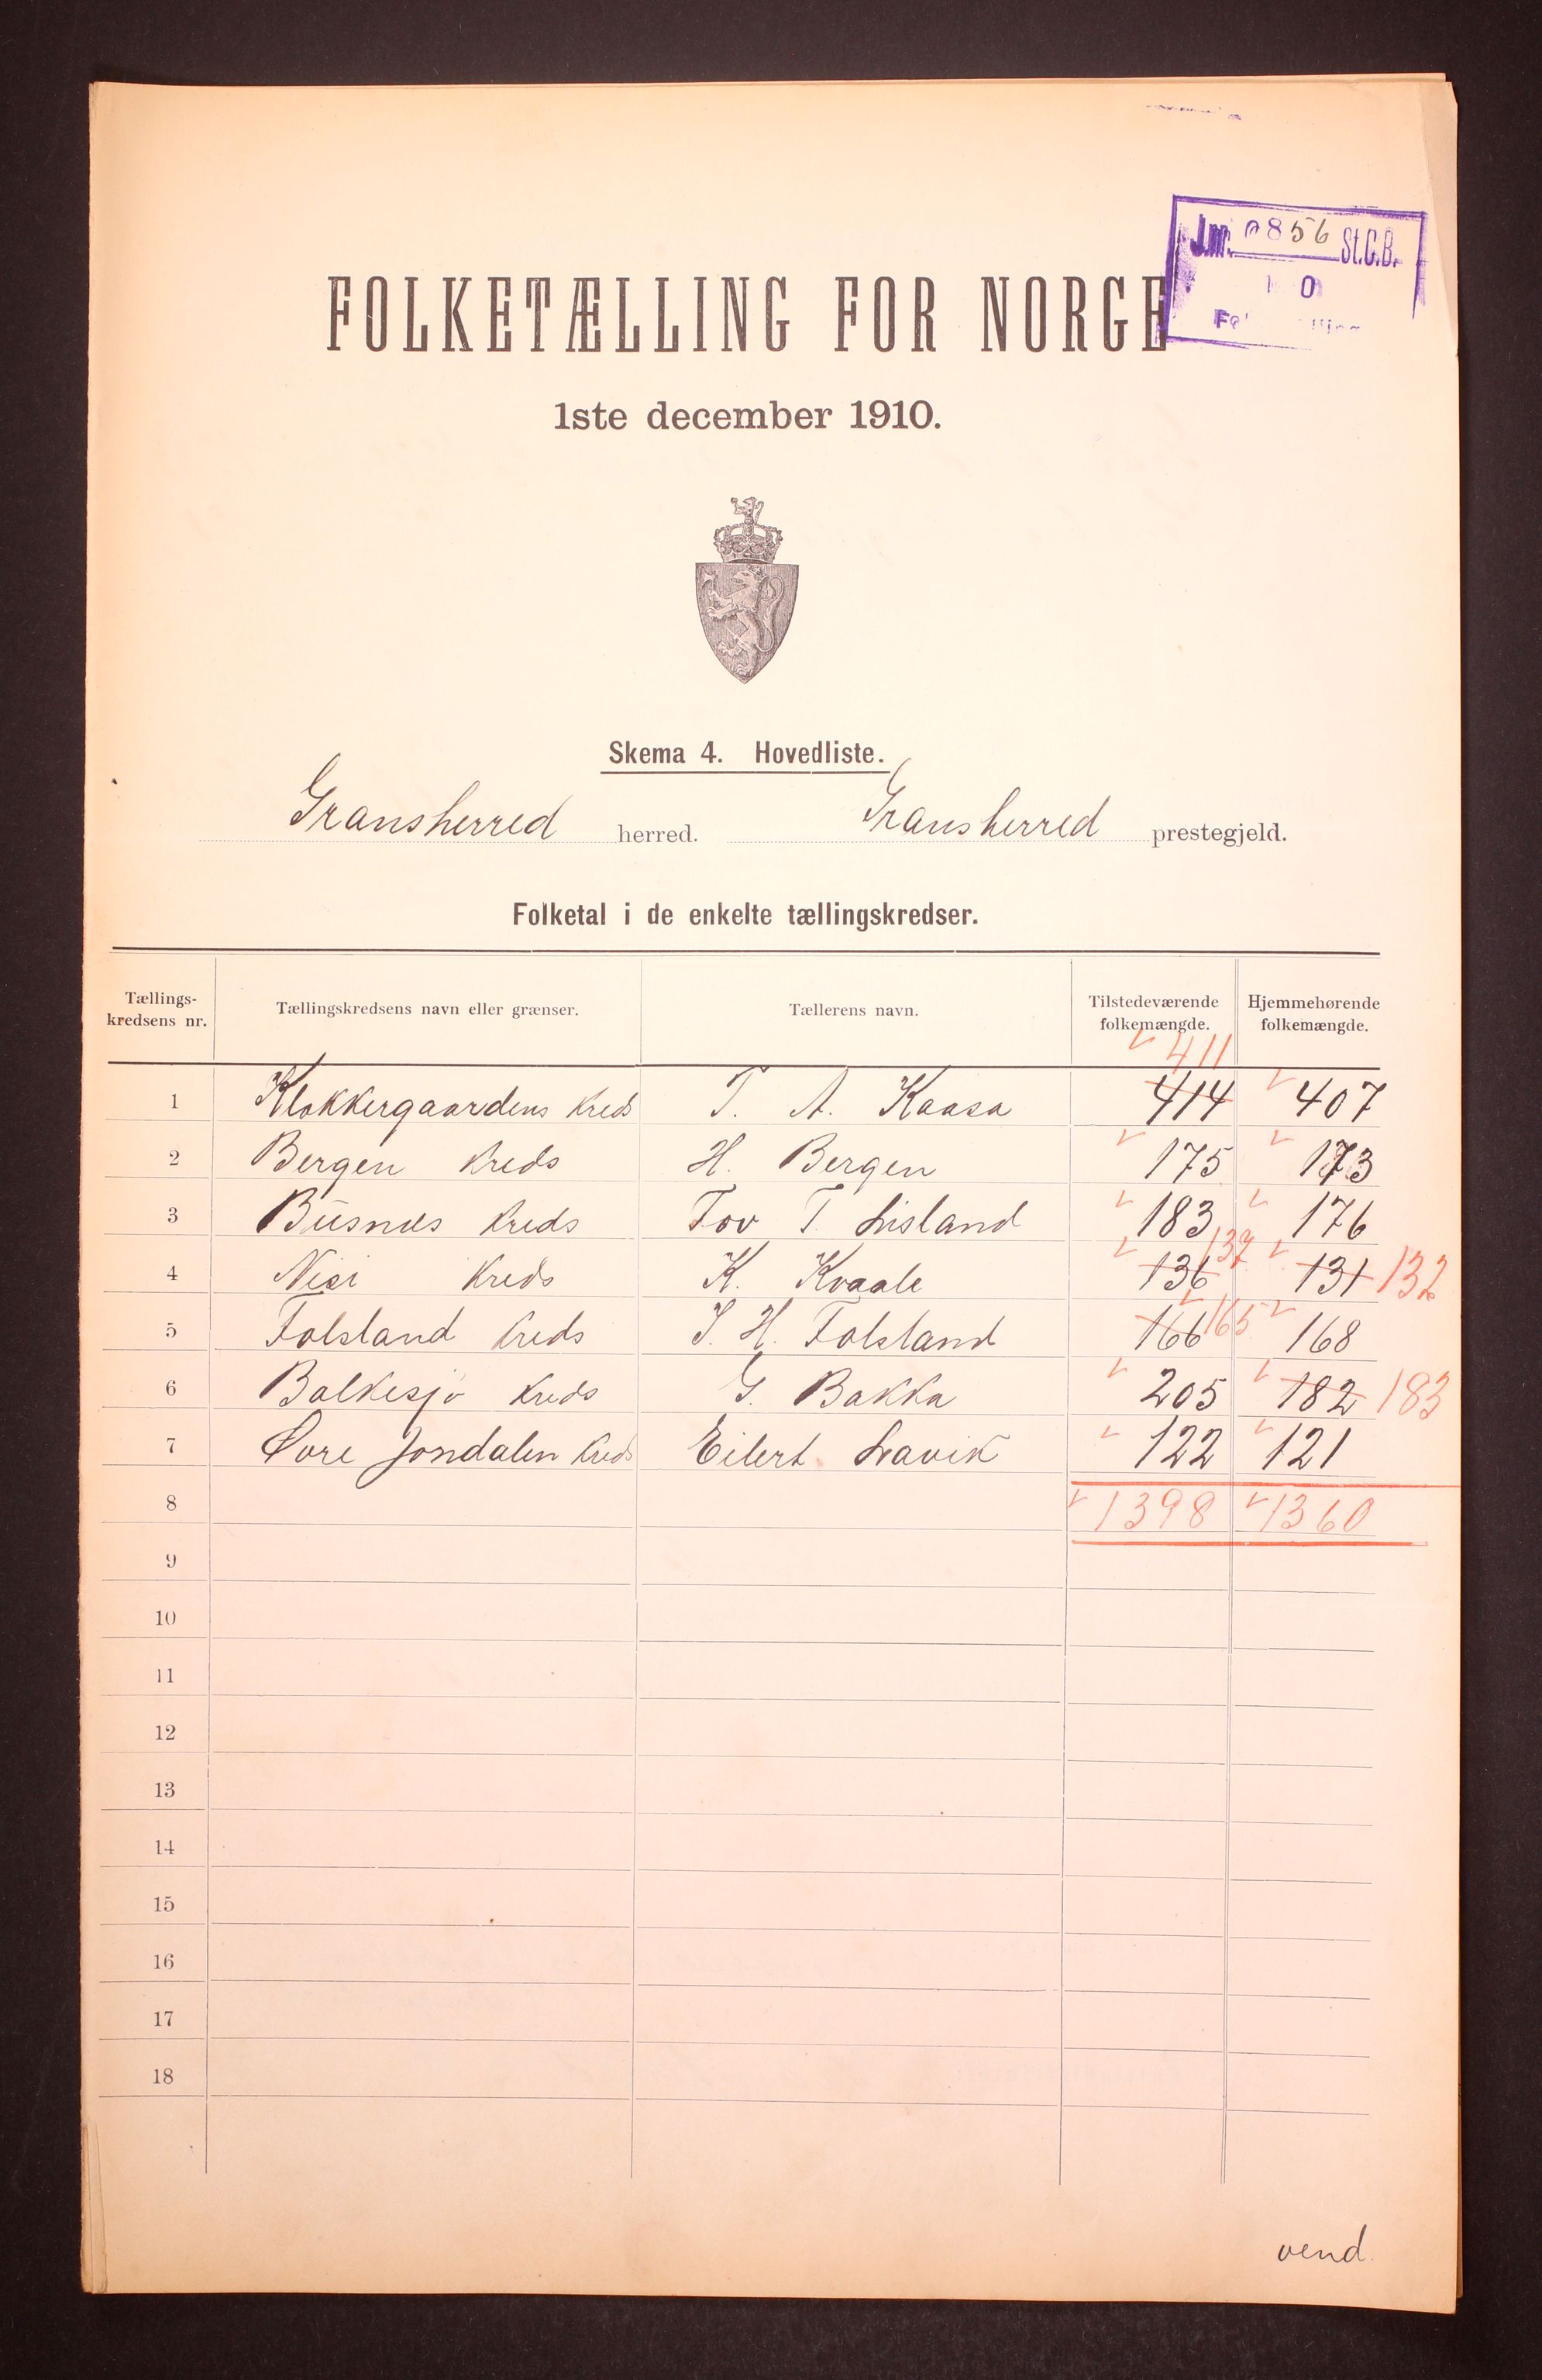 J.nr. 0856 St.C.B.
FOLKETÆLLING FOR NORGE
1ste december 1910.
Skema 4. Hovedliste.
Gransherred herred. Gransherred prestegjeld.
Folketal i de enkelte tællingskredser.
Tællings-kredsens nr. Tællingskredsens navn eller grænser. Tællerens navn. Tilstedeværende folkemængde. Hjemmehørende folkemængde.
411
1 Klokkergaardens Kreds T. A. Kaasa 414 407
2 Bergen Kreds H. Bergen 175 173
3 Busnes Kreds Tov T. Lisland 183 176
4 Kreds K. Kvaale 136 137 131 132
5 Folsland Kreds J. H. Folsland 166 165 168
6 Bolkesjø Kreds G. Bakka 205 182 183
7 Øvre Jondalen Kreds Eilert Lavik 122 121
8 1398 1360
9
10
11
12
13
14
15
16
17
18
vend.